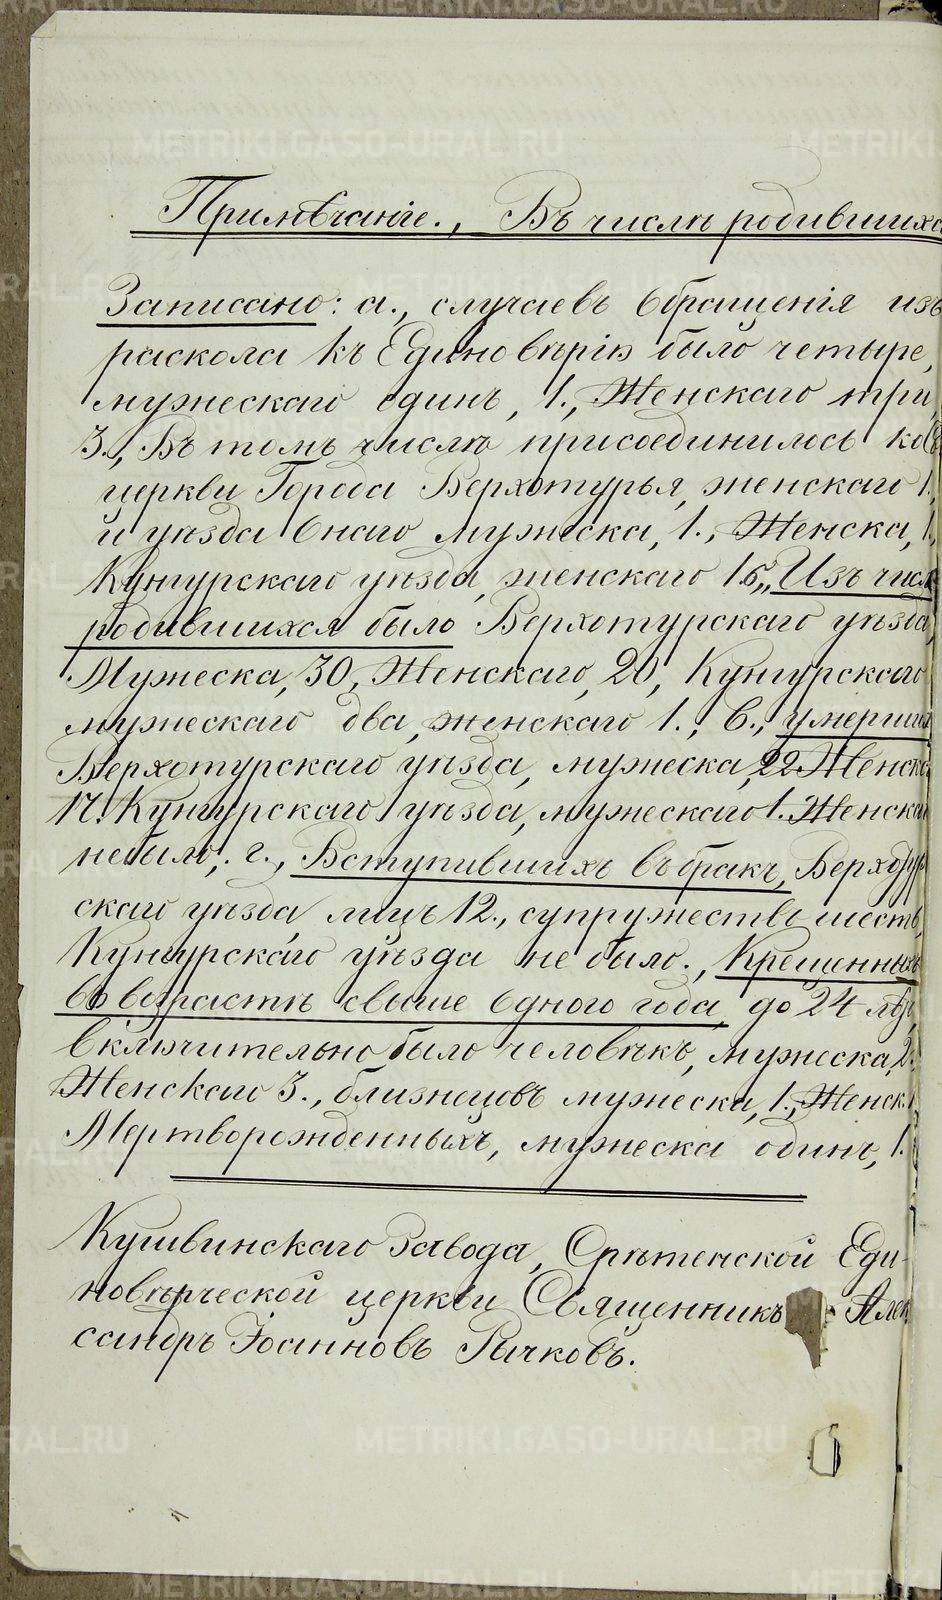 Примѣчаніе., Въ числѣ родившихся
Записано: а., случаевъ обращенія изъ
раскола къ Единовѣрію было четыре,
мужескаго одинъ, 1., Женскаго три,
3., Въ томъ числѣ присоединилось ко
церкви Города Верхотурья, женскаго 1.,
и уѣзда онаго мужеска, 1., Женска, 1.
Кунгурскаго уѣзда, женскаго 1 б., Изъ числ
родившихся было Верхотурскаго уѣзда,
Мужеска, 30, Женскаго, 20, Кунгурскаго
мужескаго два, женскаго 1., в., умерших
Верхотурскаго уѣзда, мужеска, 22 Женска
17. Кунгурскаго уѣзда, мужескаго 1. Женска
небыло; г., Вступившихъ въ бракъ, Верхотур
скаго уѣзда лицъ 12., супружествъ шесть,
Кунгурскаго уѣзда не было., Крещенныхъ
въ возрастѣ свыше одного года до 24 лѣт,
включительно было человѣкъ, мужеска, 2.
Женскаго 3., близнецовъ мужеска, 1., Женск. 1
Мертворожденныхъ, мужеска одинъ, 1.
Кушвинскаго Завода, Срѣтенской Еди-
новѣрческой церкви Священникъ Алек
сандръ Іоанновъ Рычковъ.
METRIKI.GASO-URAL.RU